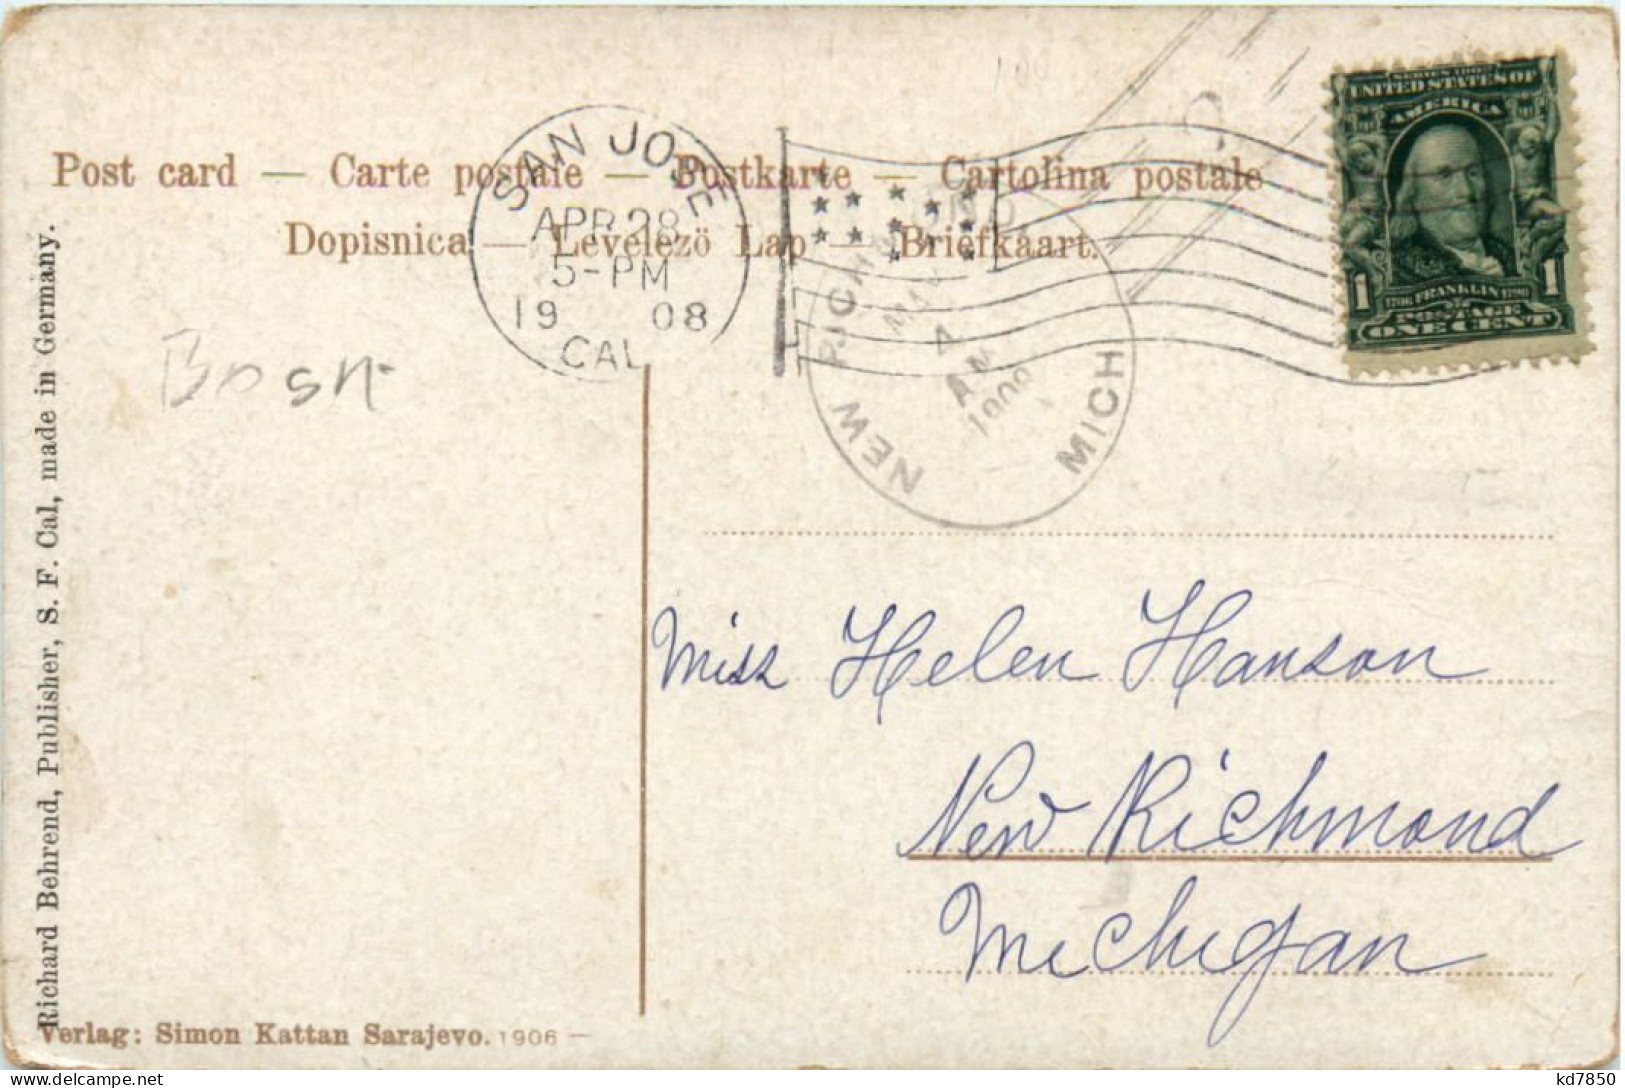 Post card — Carte postale — Postkarte — Cartolina postale
Dopisnica — Levelező Lap — Briefkaart.
SAN JOSE
APR 28
5-PM
19 08
CAL
NEW RICHMOND
MAY
4
AM
1908
MICH
SERIES 1902
UNITED STATES OF
AMERICA
1 1
1706 FRANKLIN 1790
POSTAGE
ONE CENT
Bosn
Miss Helen Hanson
New Richmond
Michigan
Richard Behrend, Publisher, S. F. Cal, made in Germany.
Verlag: Simon Kattan Sarajevo. 1906 —
kd7850